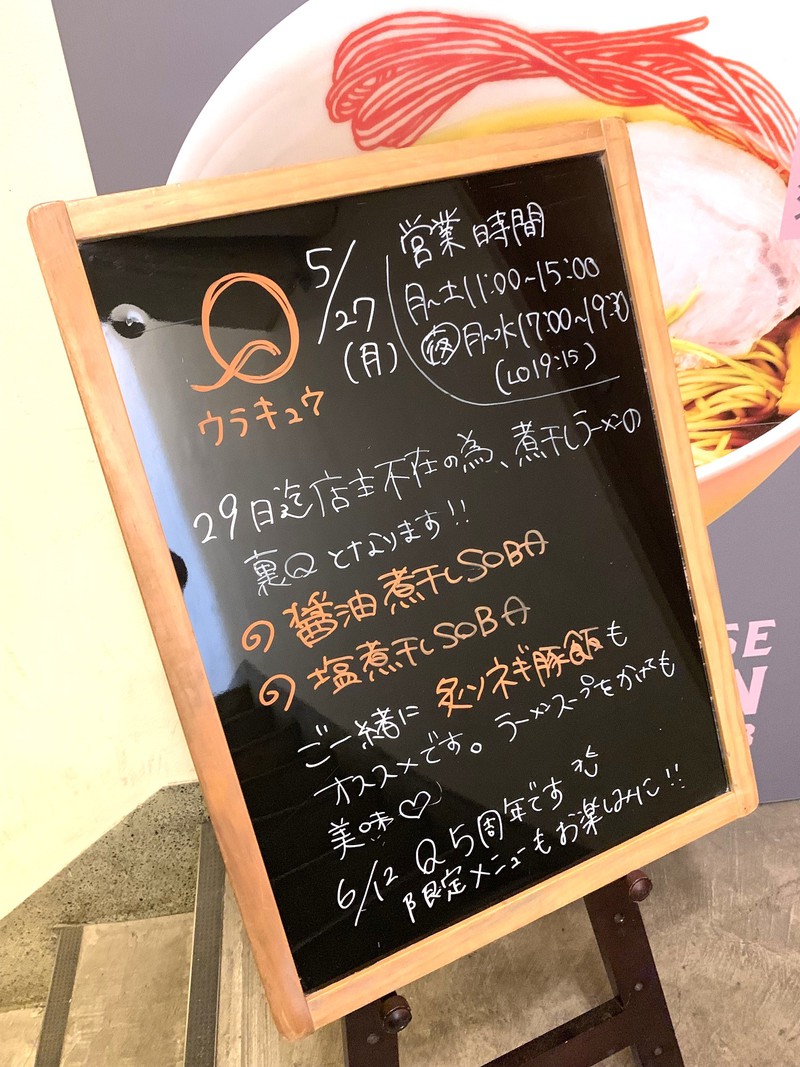 Q
ウラキュウ
5/27
(月)
営業時間
月~土 11:00~15:00
夜 月~水 17:00~19:30
(LO 19:15)
29日迄店主不在の為、煮干しラーメンの
裏Qとなります!!
の 醤油煮干しSOBA
の 塩煮干しSOBA
ご一緒に 炙りネギ豚飯も
オススメです。ラーメンスープをかけても
美味♡
6/12 Q5周年です
限定メニューもお楽しみに!!
SE
N
B